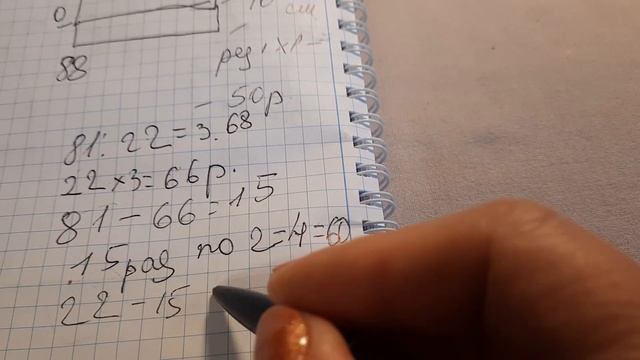 0
10 см
88
- 50р.
81:22=3.68
22×3=66р.
81-66=15
15раз по 2-4=60
22-15